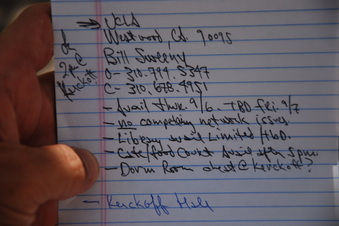 → UCLA
Westwood, Ca 90095
Bill Sweeny
O- 310.794.5347
C- 310.678.4951
- Avail thur. 9/6. TBD fri. 9/7
- no competing network issues
- Library avail Limited / TBD.
- Cafe/Food Court Avail after 5pm
- Dorm Room @ Kerckoff?
- Kerckoff Hall
@
Kerckoff